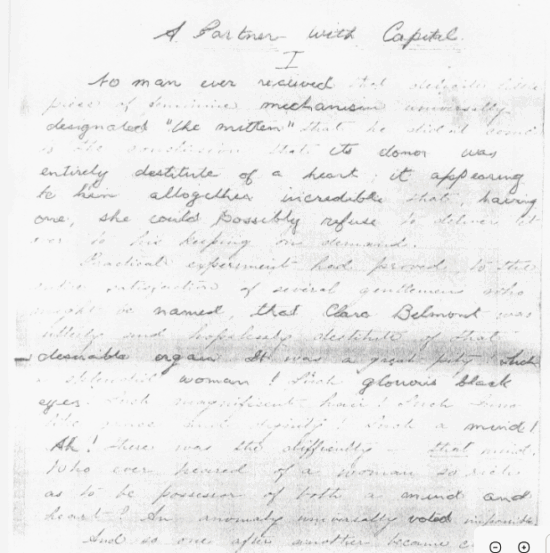 A Partner with Capital
I
No man ever received that delicate little
piece of feminine mechanism universally
designated "the mitten" that he did not come
to the conclusion that its donor was
entirely destitute of a heart; it appearing
to him altogether incredible that, having
one, she could Possibly refuse to deliver it
over to his keeping on demand.
Practical experiment had proved to the
entire satisfaction of several gentlemen who
might be named, that Clara Belmont was
utterly and hopelessly destitute of that
desirable organ. It was a great pity. Such
a splendid woman! Such glorious black
eyes. Such magnificent hair! Such
grace and dignity! Such a mind!
Ah! there was the difficulty - that mind.
Who ever heard of a woman so rich
as to be possessor of both a mind and
heart? An anomaly univerially voted impossible
And so one after another became